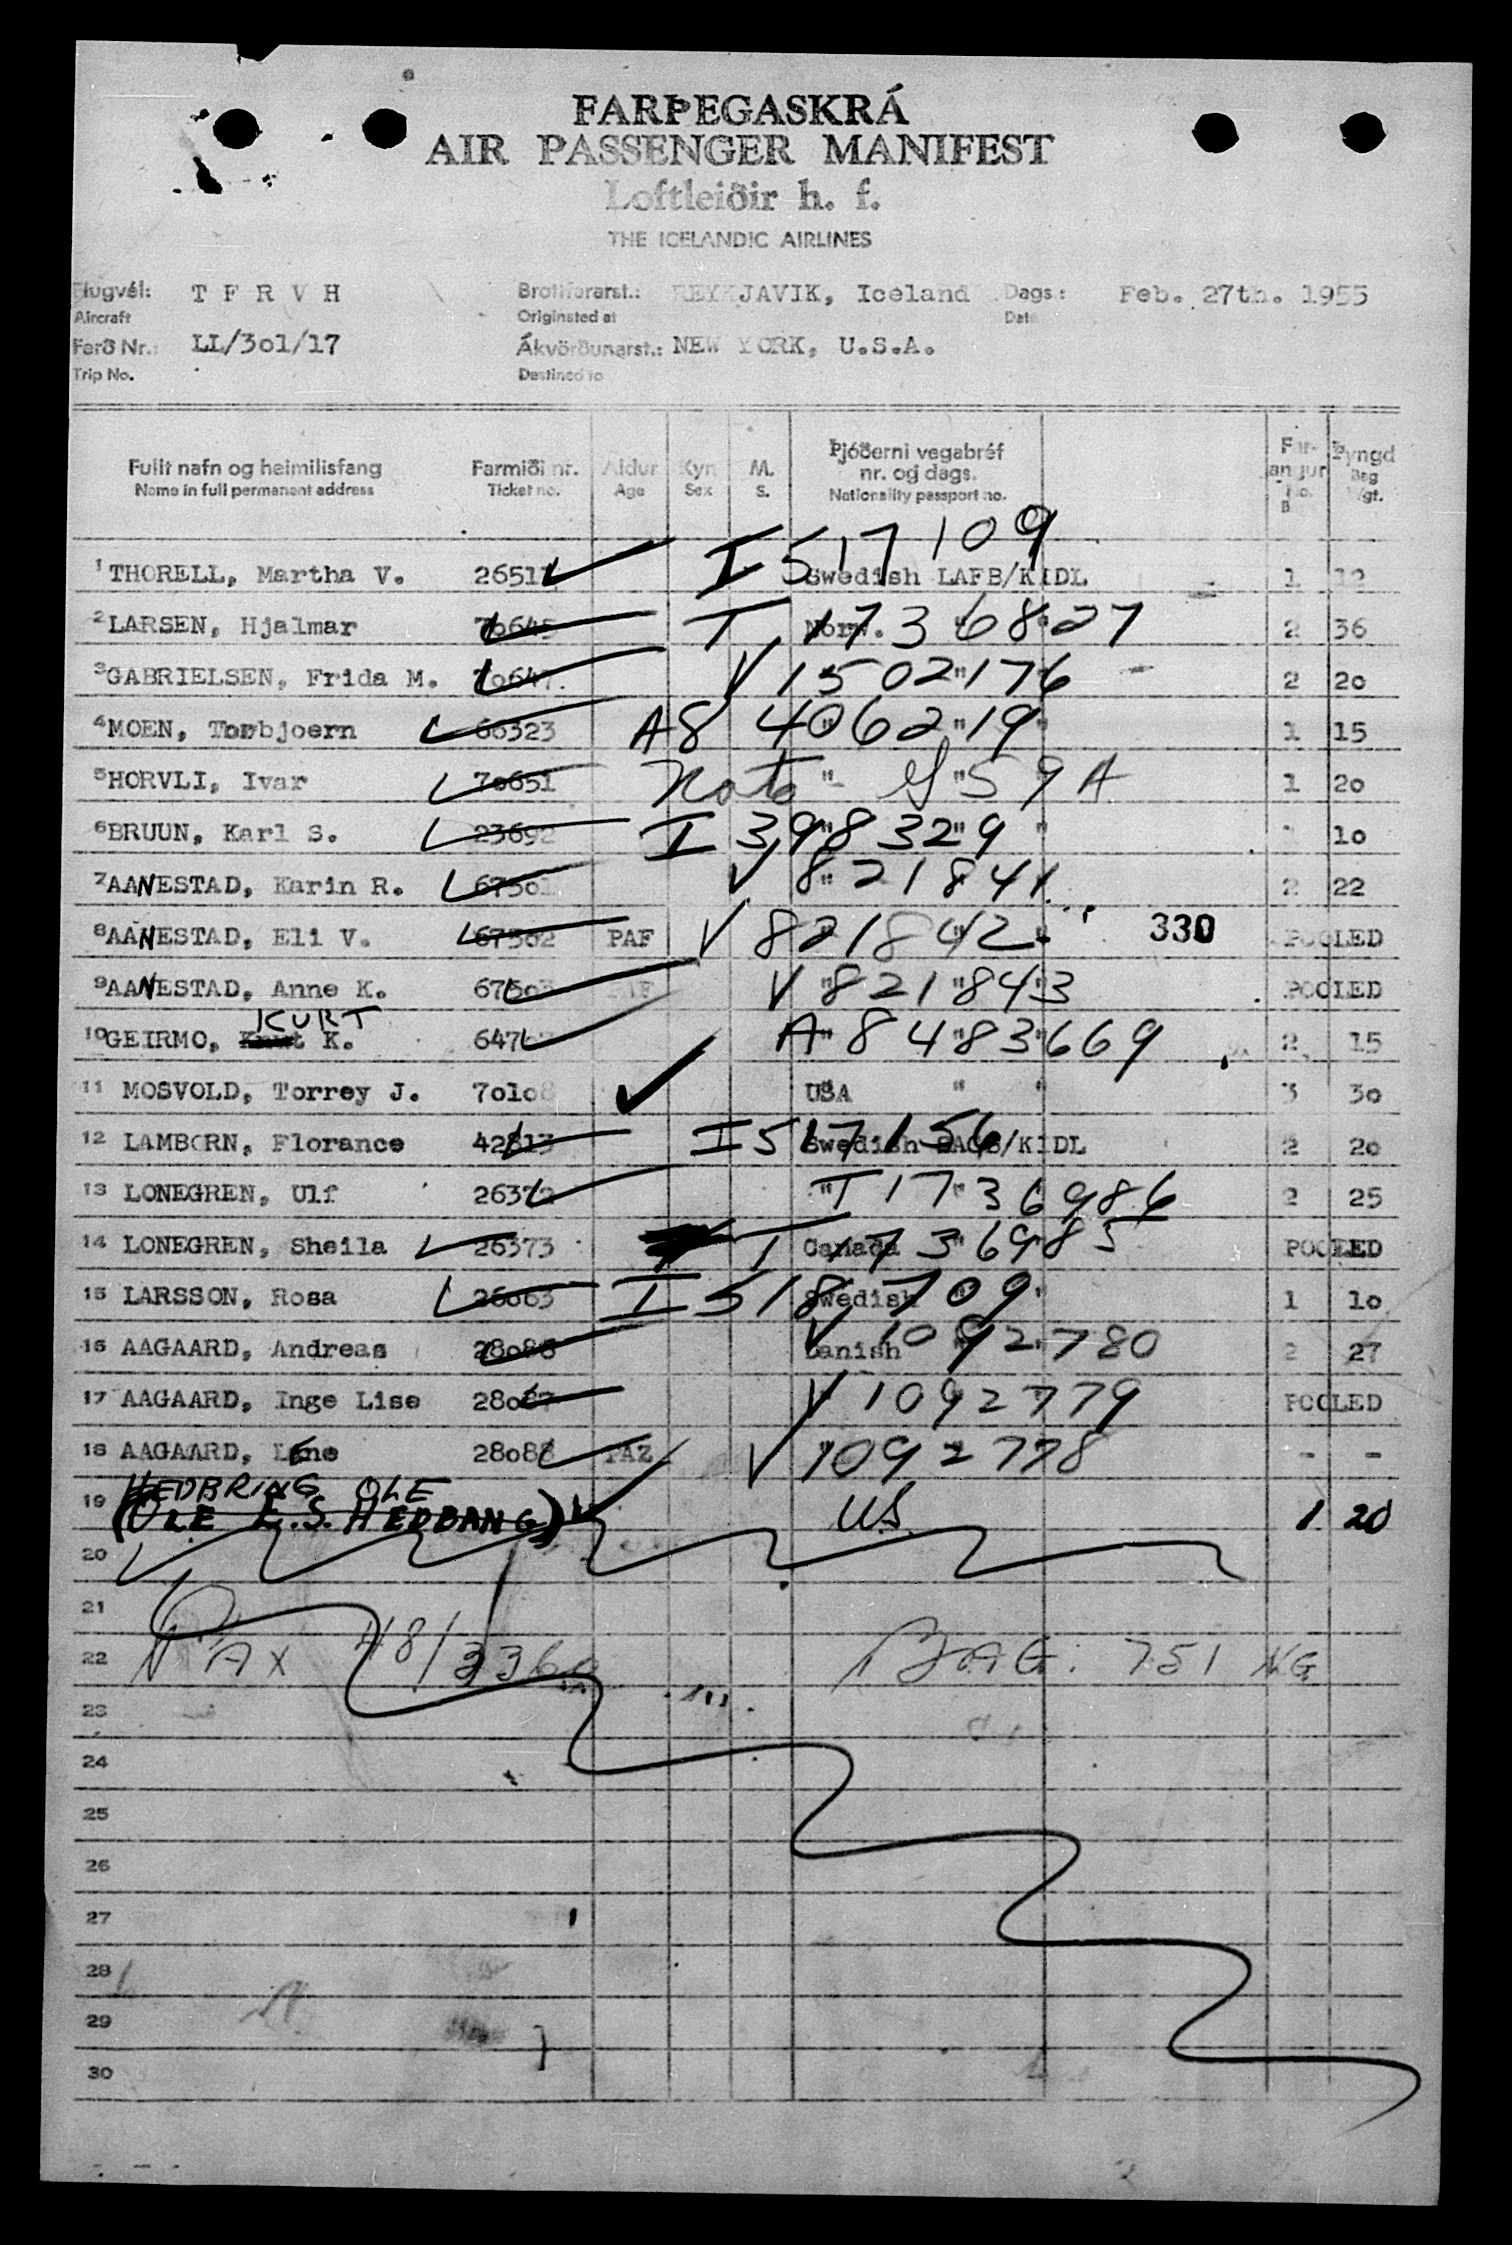 FARÞEGASKRÁ
AIR PASSENGER MANIFEST
Loftleiðir h. f.
THE ICELANDIC AIRLINES
Flugvél: T F R V H Brottfararst.: REYKJAVIK, Iceland Dags.: Feb. 27th. 1955
Aircraft Originated at Date
Ferð Nr.: LL/3o1/17 Ákvörðunarst.: NEW YORK, U.S.A.
Trip No. Destined to
Fullt nafn og heimilisfang Farmiði nr. Aldur Kyn M. Þjóðerni vegabréf Far- Þyngd
Name in full permanent address Ticket no. Age Sex S. nr. og dags. angur Bag
Nationality passport no. No. Wgt.
1 THORELL, Martha V. 2651 I 517109 Swedish LAFB/KIDL 1 12
2 LARSEN, Hjalmar 7o645 T 1736827 Norw. 2 36
3 GABRIELSEN, Frida M. 7o647 V 1502176 " 2 2o
4 MOEN, Torbjoern 66323 A8 406219 " " " 1 15
5 HORVLI, Ivar 7o651 Nato " " 59A 1 2o
6 BRUUN, Karl S. 23692 I 398329 " " " 1o
7 AANESTAD, Karin R. 673o1 V 821841 " 2 22
8 AANESTAD, Eli V. 673o2 PAF V 821842 330 POOLED
9 AANESTAD, Anne K. 673o3 V 821843 " " " POOLED
10 GEIRMO, KURT K. 647 A 8483669 " " " 2 15
11 MOSVOLD, Torrey J. 7o1o8 USA " " 3 3o
12 LAMBORN, Florance 42813 I 517156 Swedish /KIDL 2 2o
13 LONEGREN, Ulf 26372 T 1736986 " " 2 25
14 LONEGREN, Sheila 26373 T 1736985 Canada " POOLED
15 LARSSON, Rosa 26o63 I 518709 Swedish " 1 1o
16 AAGAARD, Andreas 28o86 V 1092780 Danish 2 27
17 AAGAARD, Inge Lise 28o87 V 1092779 POOLED
18 AAGAARD, Lene 28o88 FAZ V 1092778 - -
HEDBRING OLE
19 (OLE E.S. HEDBANG) US. 1 20
20
21
22 PAX 18/ BAG: 751 KG
23
24
25
26
27
28
29
30